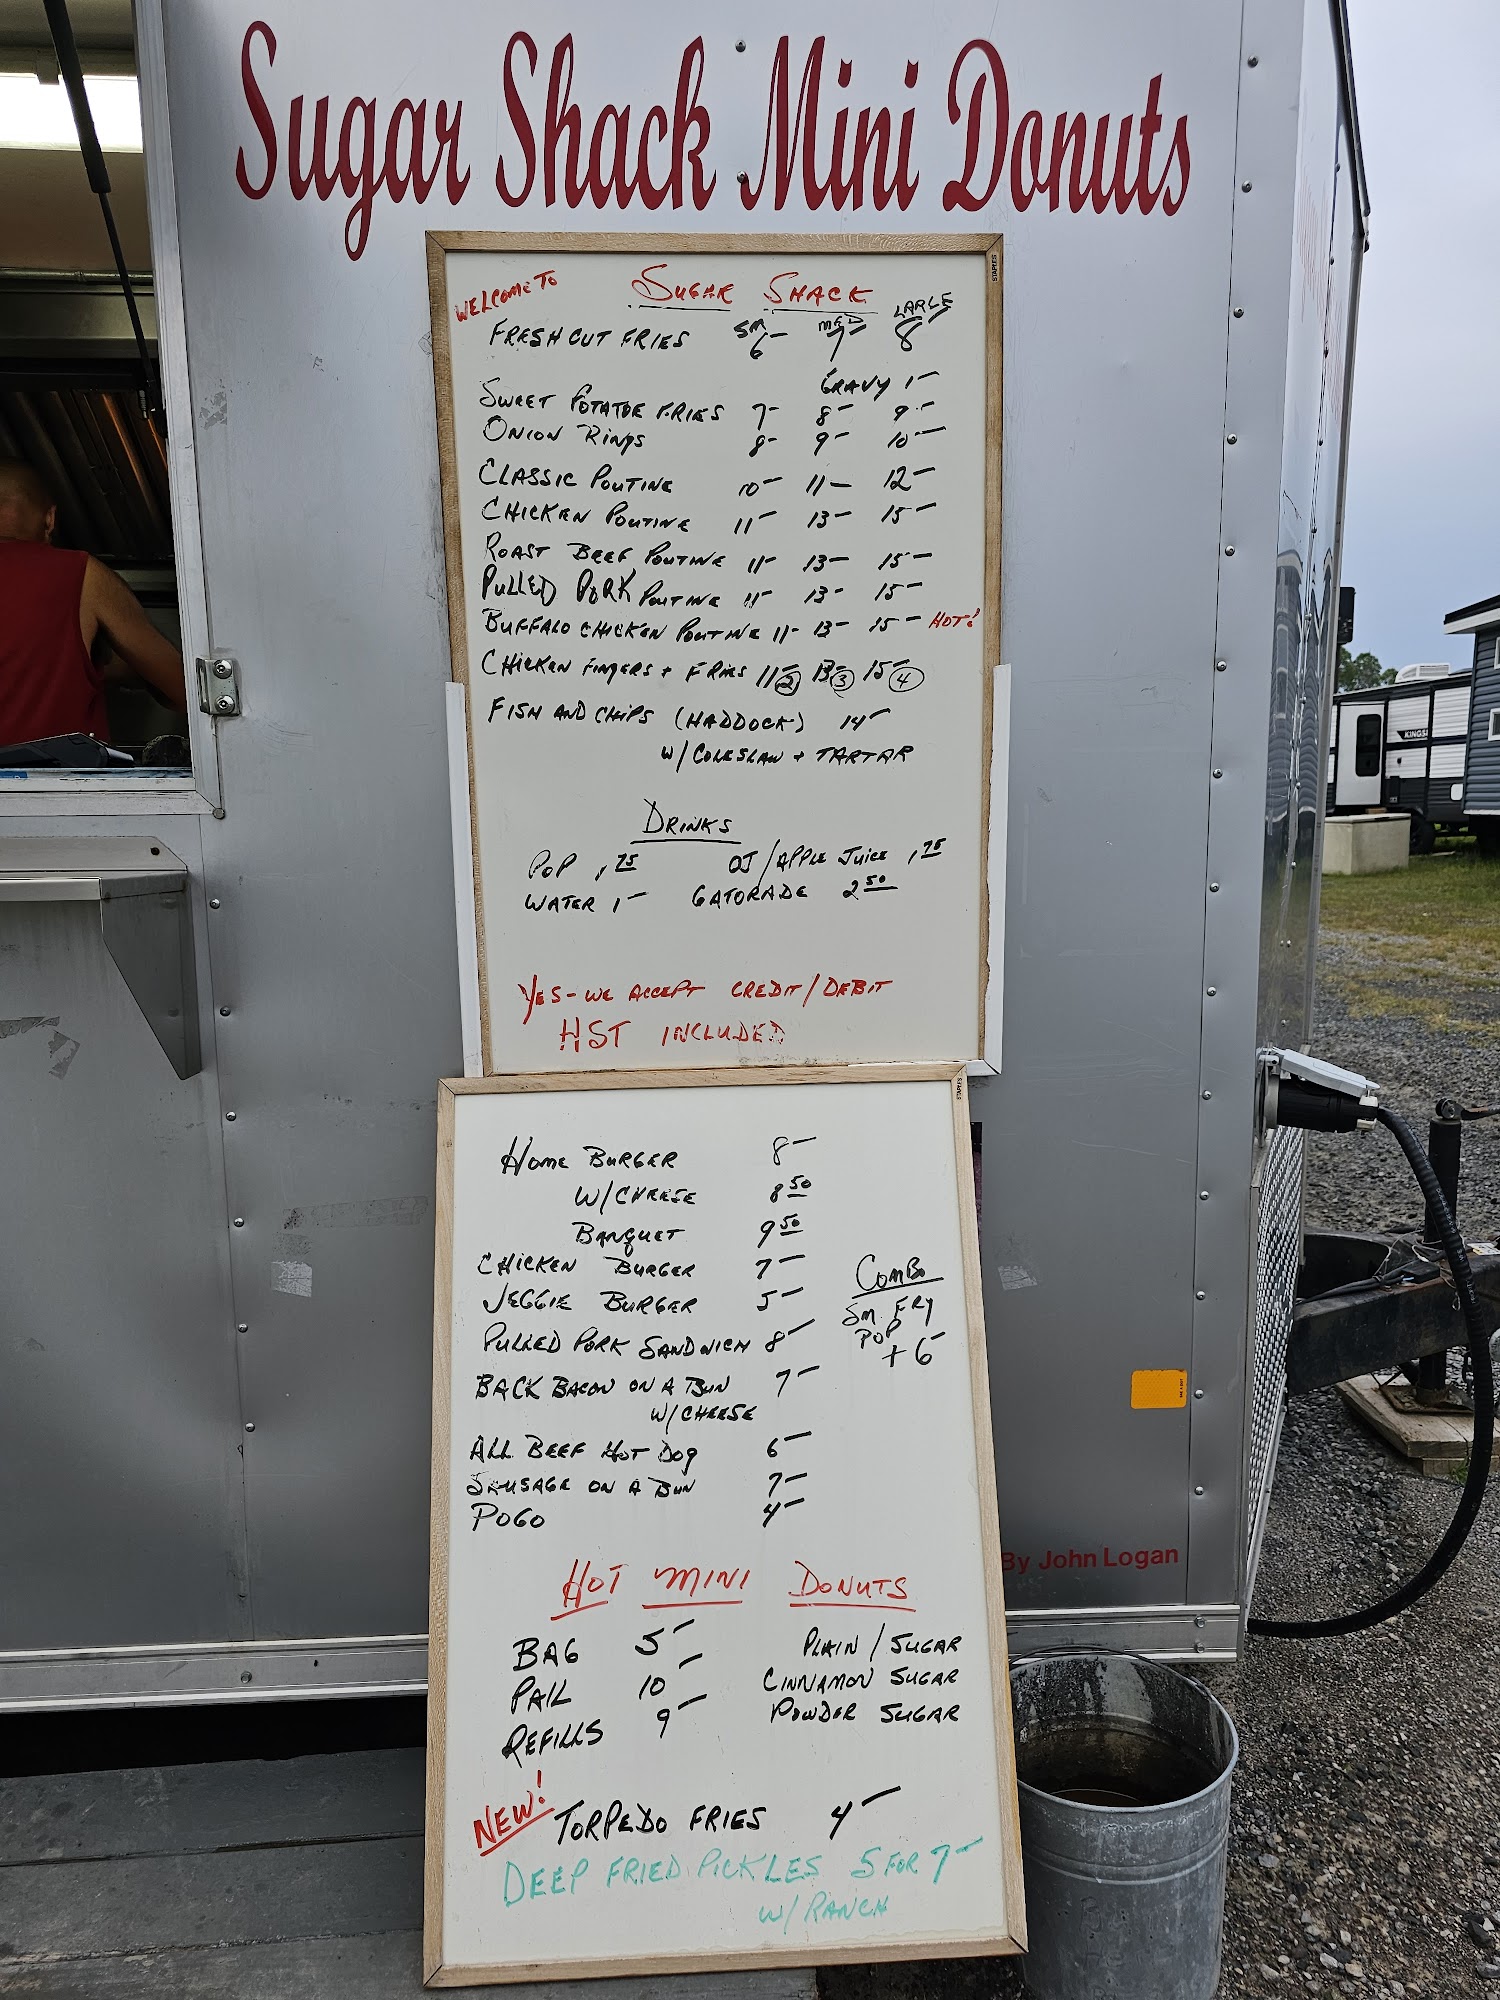 Sugar Shack Mini Donuts
WELCOME TO SUGAR SHACK
SM MED LARGE
FRESH CUT FRIES 6- 7- 8-
GRAVY 1-
SWEET POTATOE FRIES 7- 8- 9-
ONION RINGS 8- 9- 10-
CLASSIC POUTINE 10- 11- 12-
CHICKEN POUTINE 11- 13- 15-
ROAST BEEF POUTINE 11- 13- 15-
PULLED PORK POUTINE 11- 13- 15-
BUFFALO CHICKEN POUTINE 11- 13- 15- HOT!
CHICKEN FINGERS + FRIES 11- 2 13- 3 15- 4
FISH AND CHIPS (HADDOCK) 14-
W/ COLESLAW + TARTAR
DRINKS
POP 1.75 OJ/APPLE JUICE 1.75
WATER 1- GATORADE 2 50
YES - WE ACCEPT CREDIT/DEBIT
HST INCLUDED
STAPLES
STAPLES
HOME BURGER 8-
W/CHEESE 8 50
BANQUET 9 50
CHICKEN BURGER 7-
VEGGIE BURGER 5-
PULLED PORK SANDWICH 8-
BACK BACON ON A BUN 7-
W/CHEESE
ALL BEEF HOT DOG 6-
SAUSAGE ON A BUN 7-
POGO 4-
COMBO
SM FRY
POP
+ 6-
HOT MINI DONUTS
BAG 5- PLAIN / SUGAR
PAIL 10- CINNAMON SUGAR
REFILLS 9- POWDER SUGAR
NEW! TORPEDO FRIES 4-
DEEP FRIED PICKLES 5 FOR 7-
W/ RANCH
By John Logan